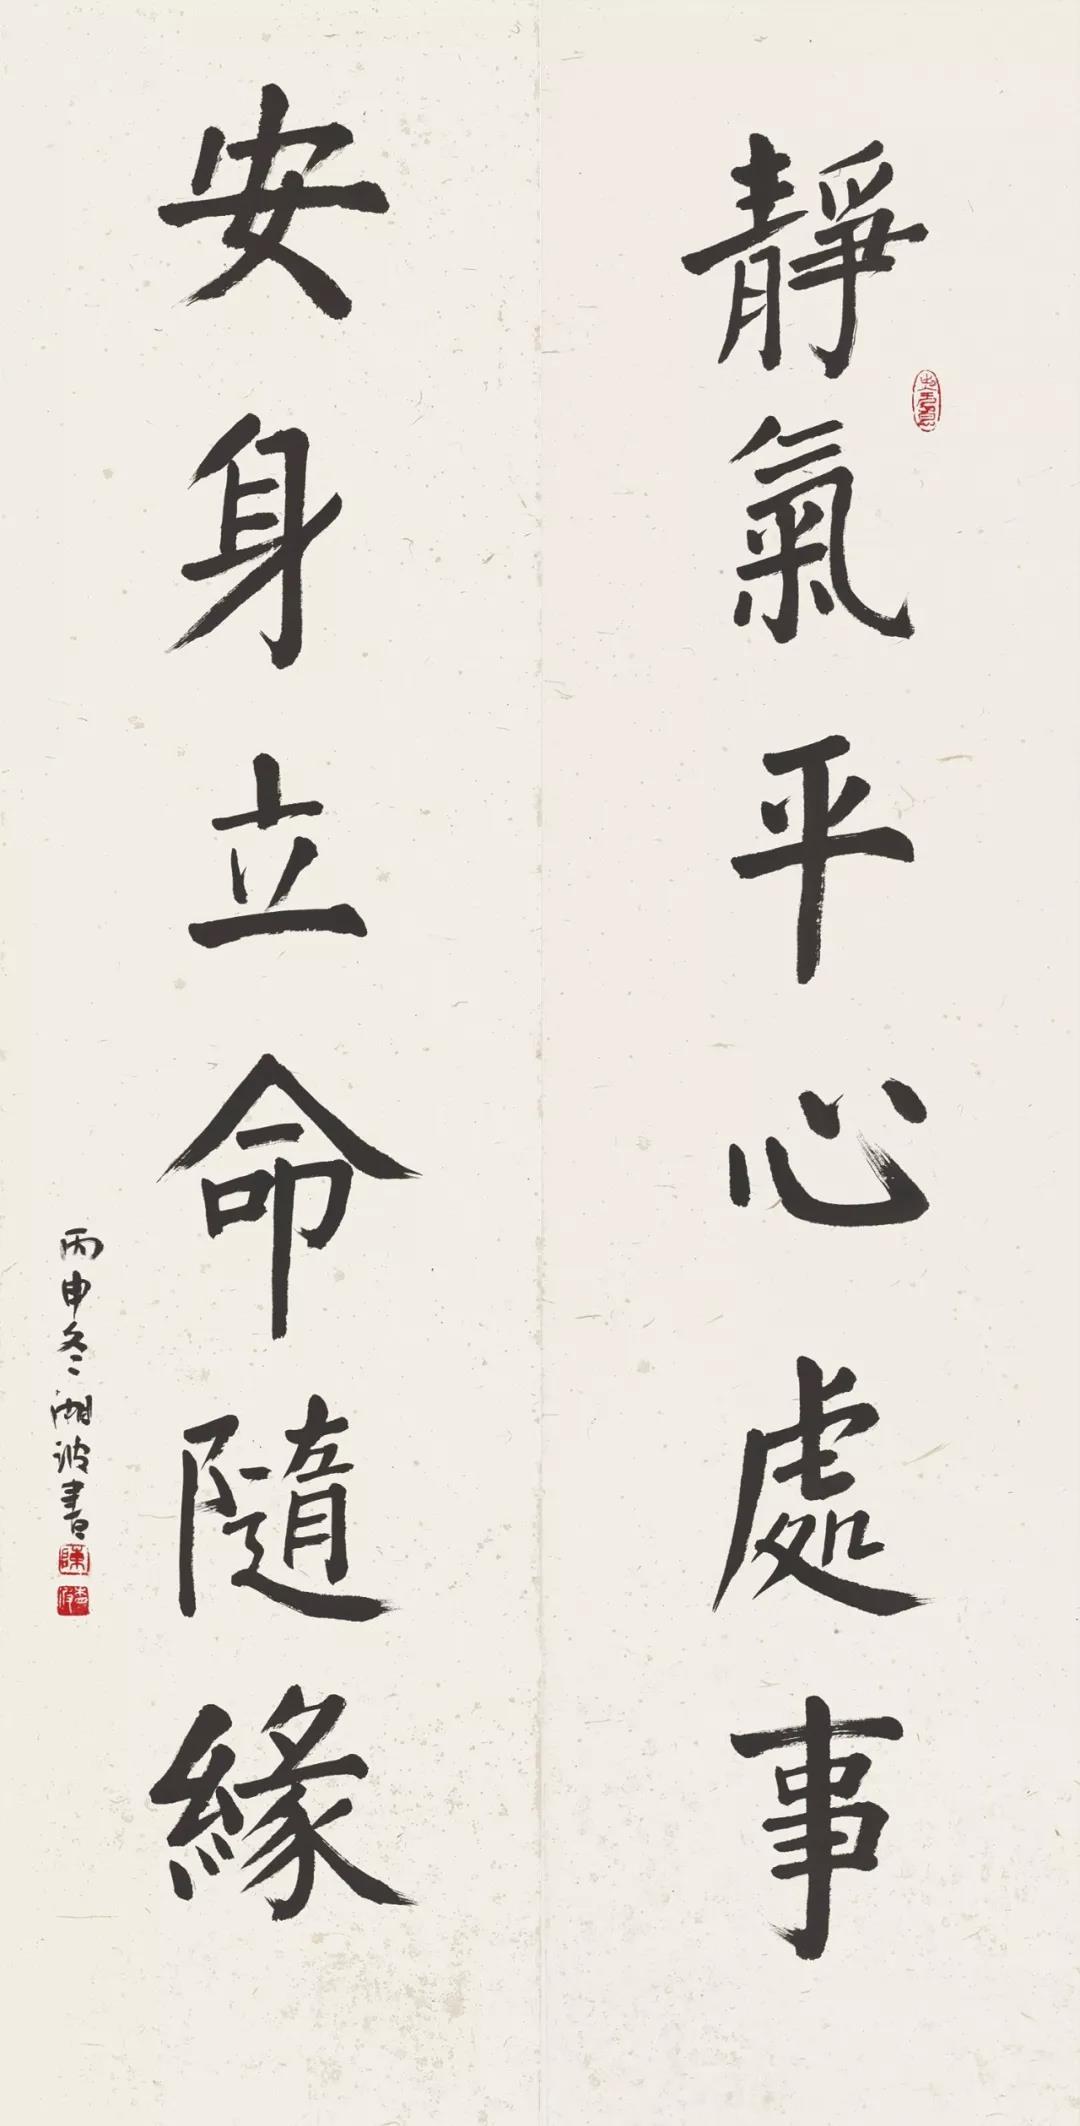 靜氣平心處事
安身立命隨緣
丙申冬湖波書